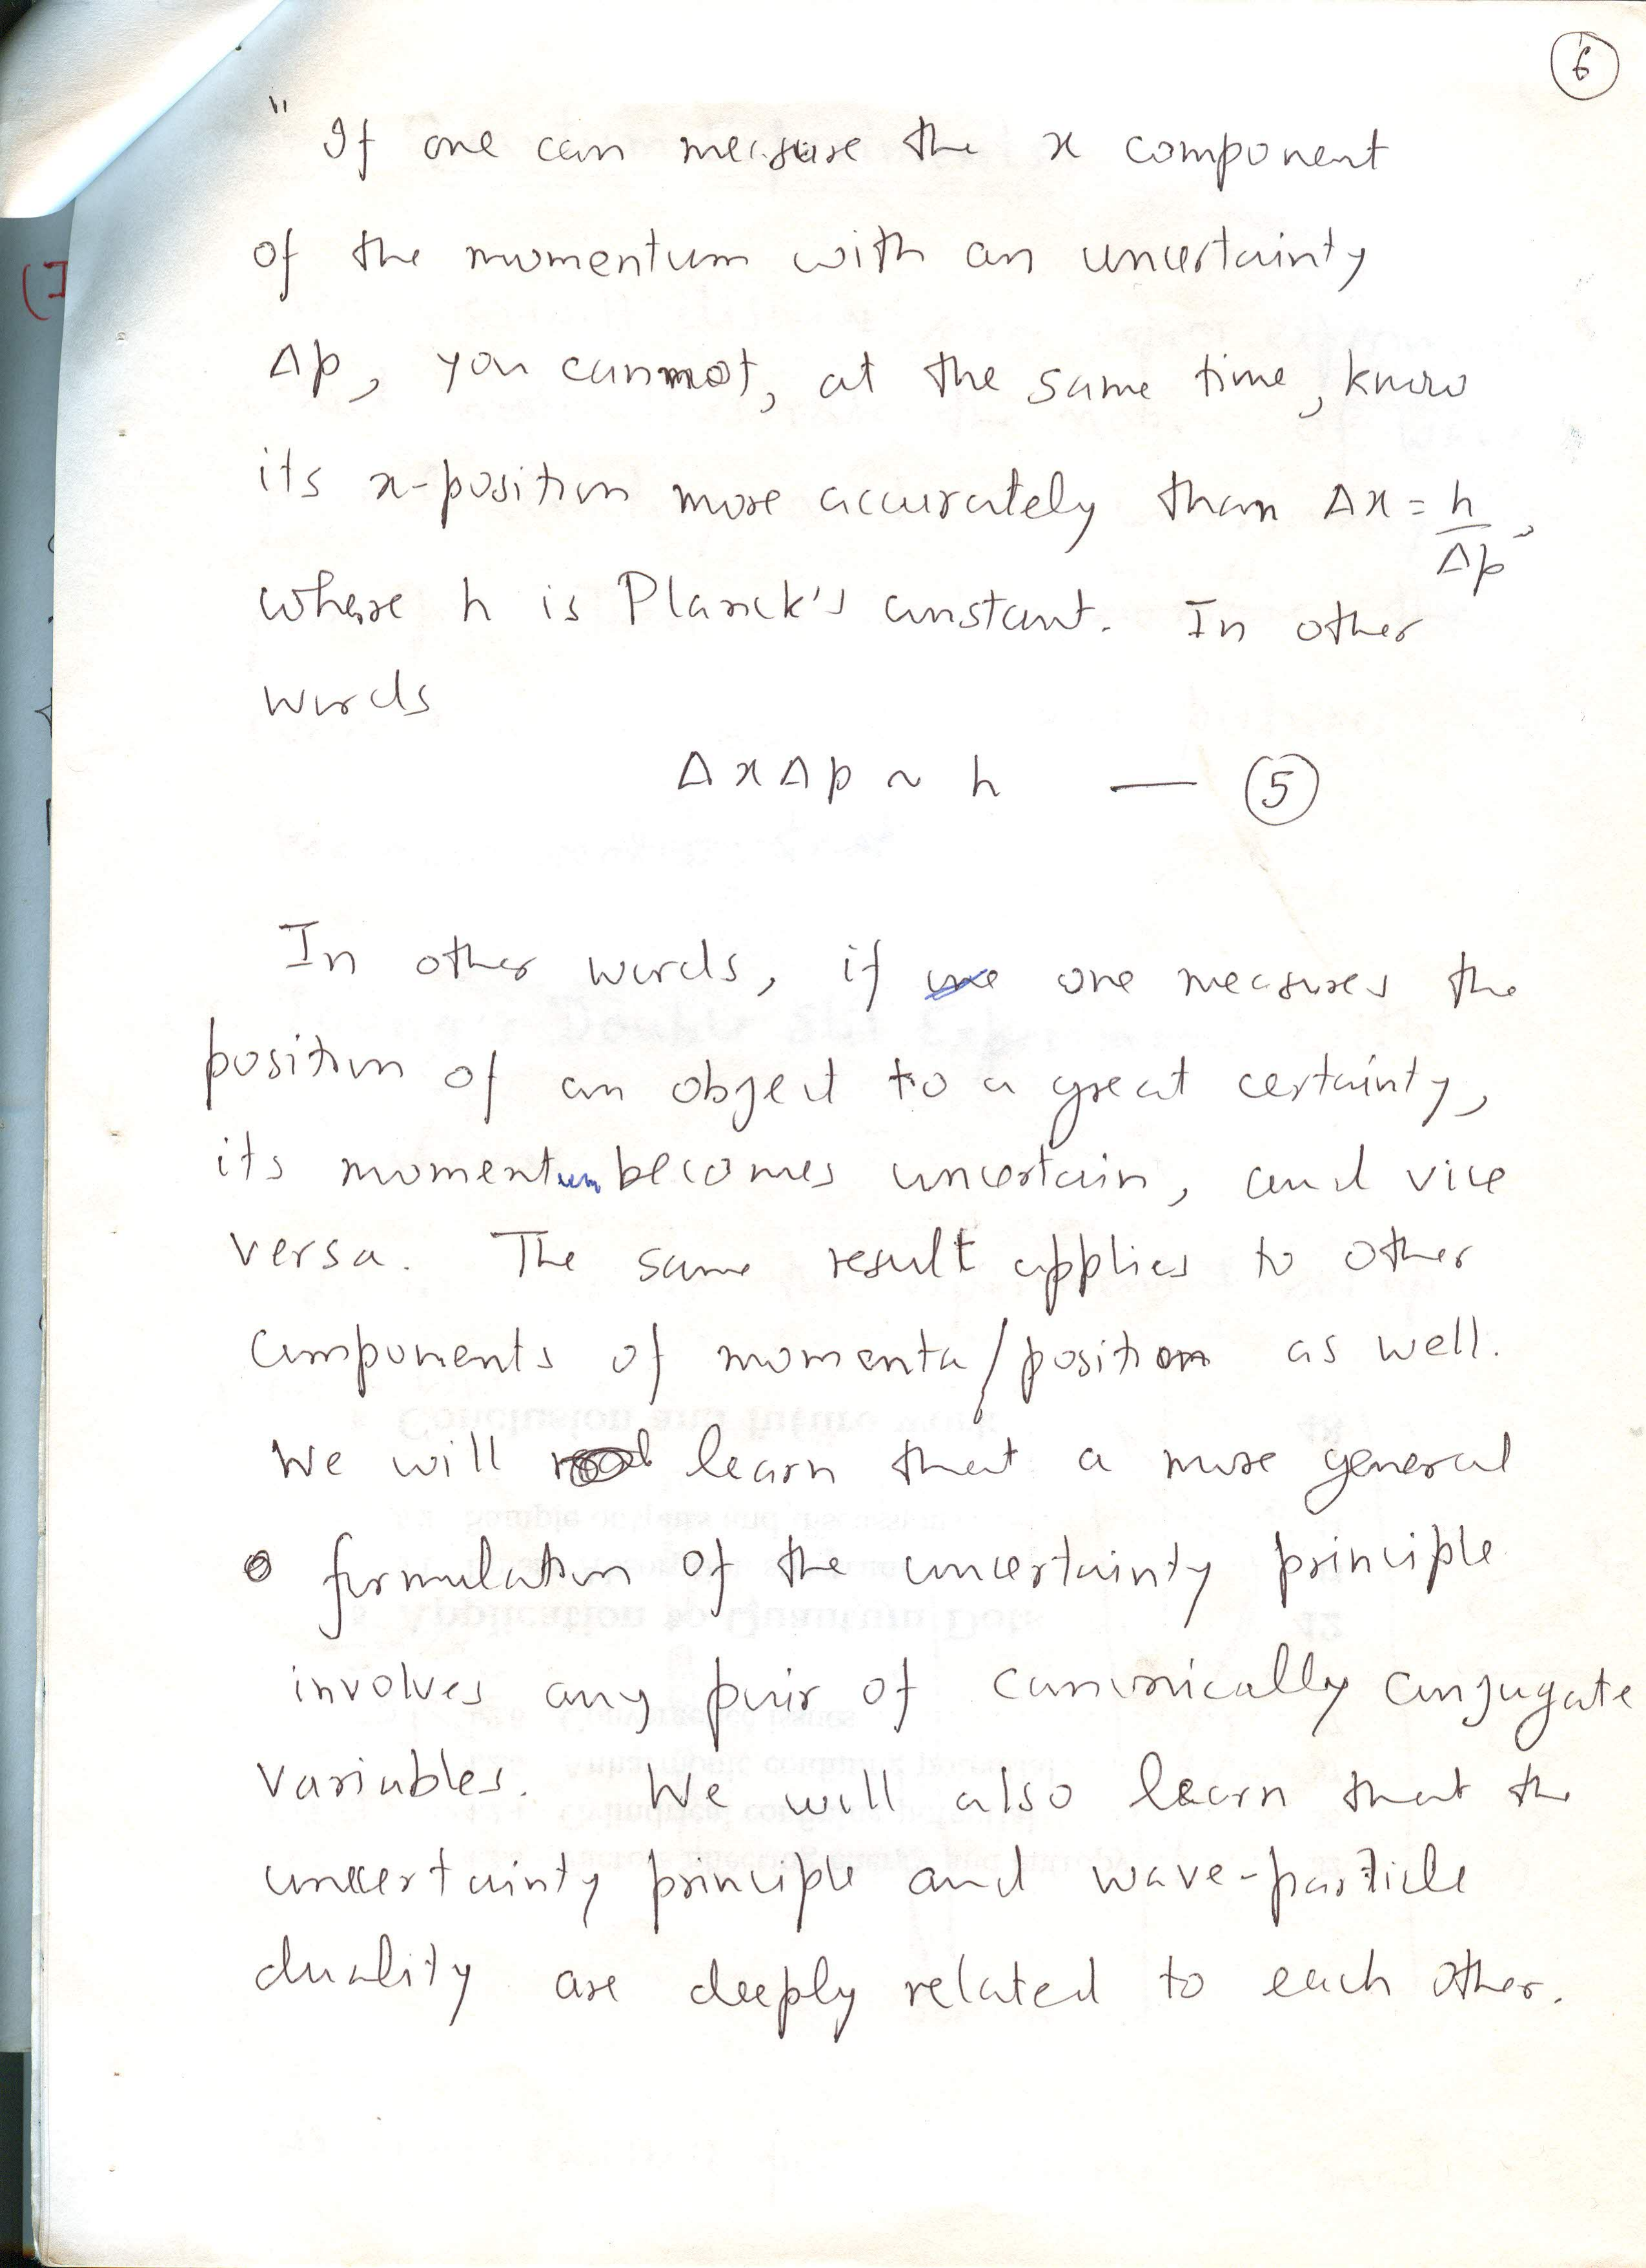 6
" If one can measure the x component
of the momentum with an uncertainty
Δp, you cannot, at the same time, know
its x-position more accurately than Δx = h/Δp,
where h is Planck's constant. In other
words
Δx Δp ~ h — 5
In other words, if one measures the
position of an object to a great certainty,
its momentum becomes uncertain, and vice
versa. The same result applies to other
components of momenta/position as well.
We will learn that a more general
formulation of the uncertainty principle
involves any pair of canonically conjugate
variables. We will also learn that the
uncertainty principle and wave-particle
duality are deeply related to each other.